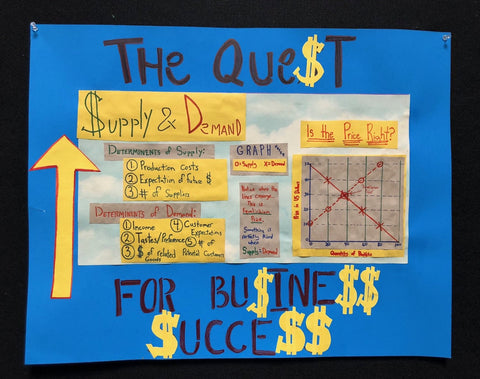 THE QUE$T
$upply & Demand
Determinents of Supply:
① Production Costs
② Expectation of Future $
③ # of Suppliers
Determinents of Demand:
① Income
② Tastes/Preference
③ $ of related Goods
④ Customer Expectations
⑤ # of Potential Customers
GRAPH
O=Supply X=Demand
Notice where the lines converge. This is
Something is perfectly priced when Supply=Demand
Is the Price Right?
Price in US Dollars
Quantity of
FOR BU$INE$$
$UCCE$$